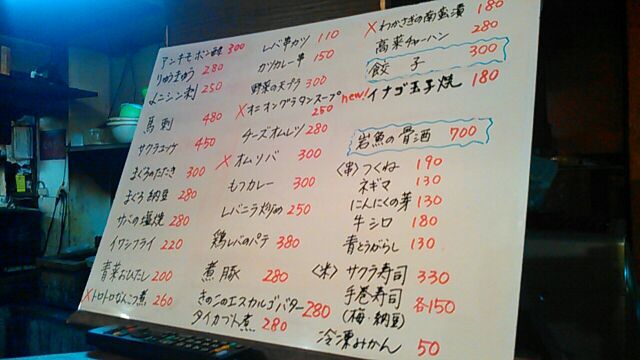 アンキモポン酢 300
りゅうきゅう 280
〆ニシン刺 250
馬刺 480
サクラユッケ 450
まぐろのたたき 300
まぐろ納豆 280
サバの塩焼 280
イワシフライ 220
青菜おひたし 200
×トロトロなんこつ煮 260
レバ串カツ 110
ガツカレー串 150
野菜の天プラ 300
×オニオングラタンスープ 250
チーズオムレツ 280
×オムソバ 300
もつカレー 300
レバニラ炒め 250
鶏レバのパテ 380
煮豚 280
きのこのエスカルゴバター 280
タイカブト煮 280
×わかさぎの南蛮漬 180
高菜チャーハン 280
餃子 300
new!イナゴ玉子焼 180
岩魚の骨酒 700
〈串〉つくね 190
ネギマ 130
にんにくの芽 130
牛シロ 180
青とうがらし 130
〈米〉サクラ寿司 330
手巻寿司 各150
(梅・納豆)
冷凍みかん 50